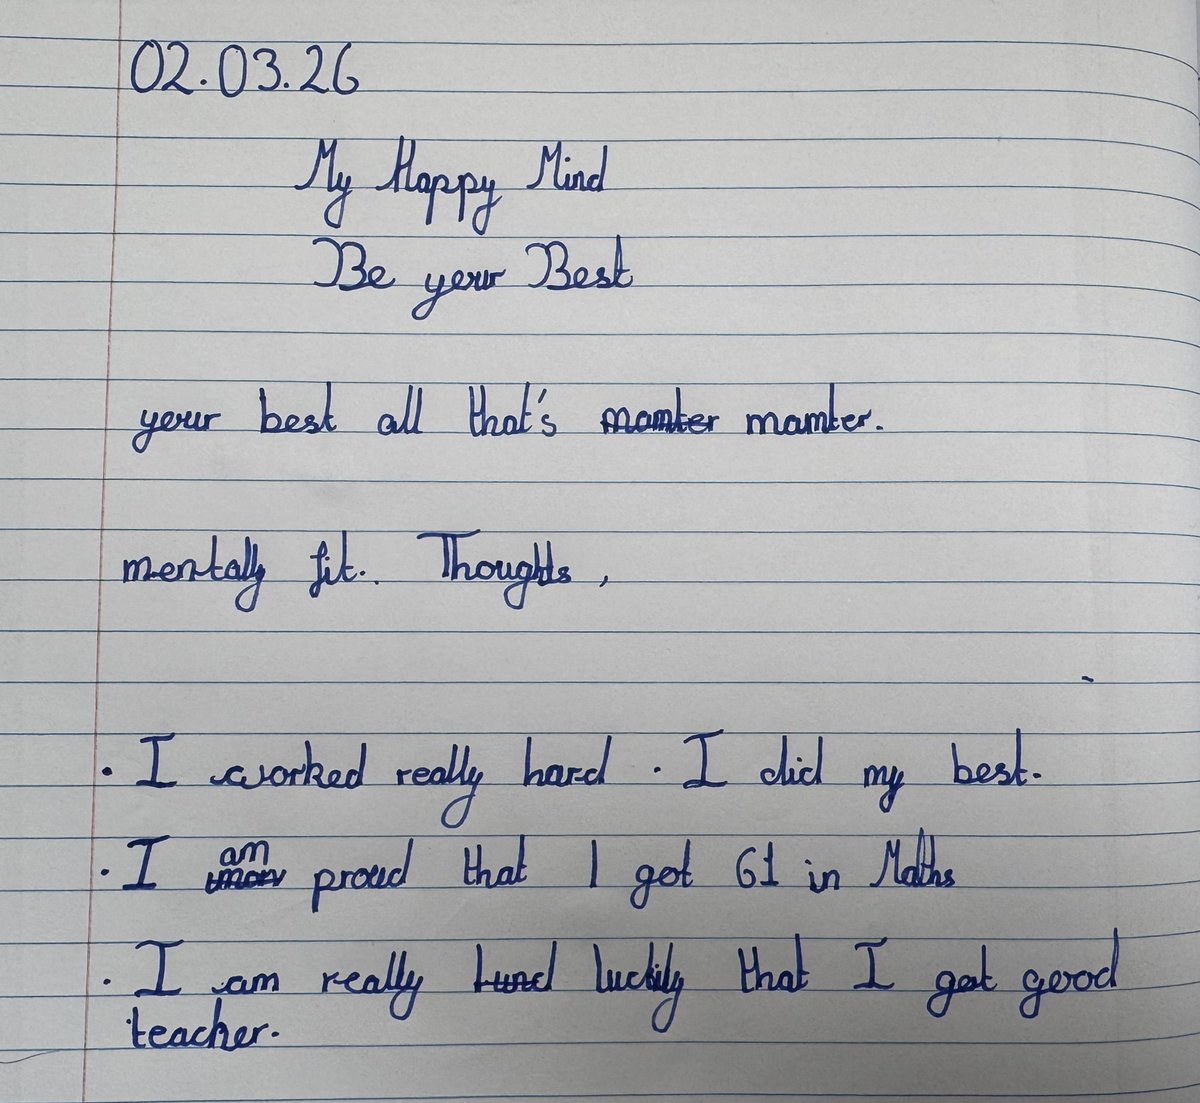 02.03.26
My Happy Mind
Be your Best
your best all that's mamter mamter.
mentally fit.. Thoughts,
· I worked really hard . I did my best.
· I am proud that I got 61 in Maths
· I am really luckily that I got good
teacher.